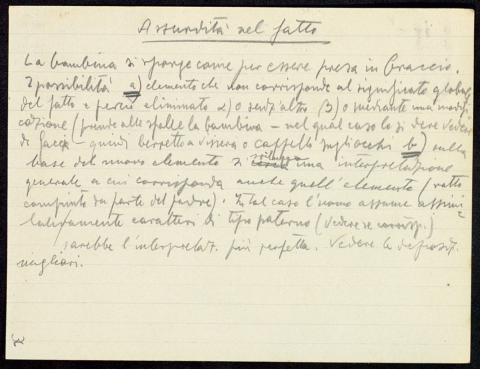 Assurdità nel fatto
La bambina si sporge come per essere presa in braccio.
2 possibilità a) elemento che non corrisponde al significato globale
del fatto e perciò eliminato α) o senz'altro β) o mediante una modifi-
cazione (prende alle spalle la bambina – nel qual caso lo si deve vedere
di faccia – quindi berretto a visiera o cappello sugli occhi b) sulla
base del nuovo elemento si sviluppa una interpretazione
generale a cui corrisponda anche quell'elemento (ratto
compiuto da parte del padre). In tal caso l'uomo assume assimi-
lativamente caratteri di tipo paterno (vedere se
sarebbe l'interpretaz. più perfetta. Vedere le deposiz.
migliori.